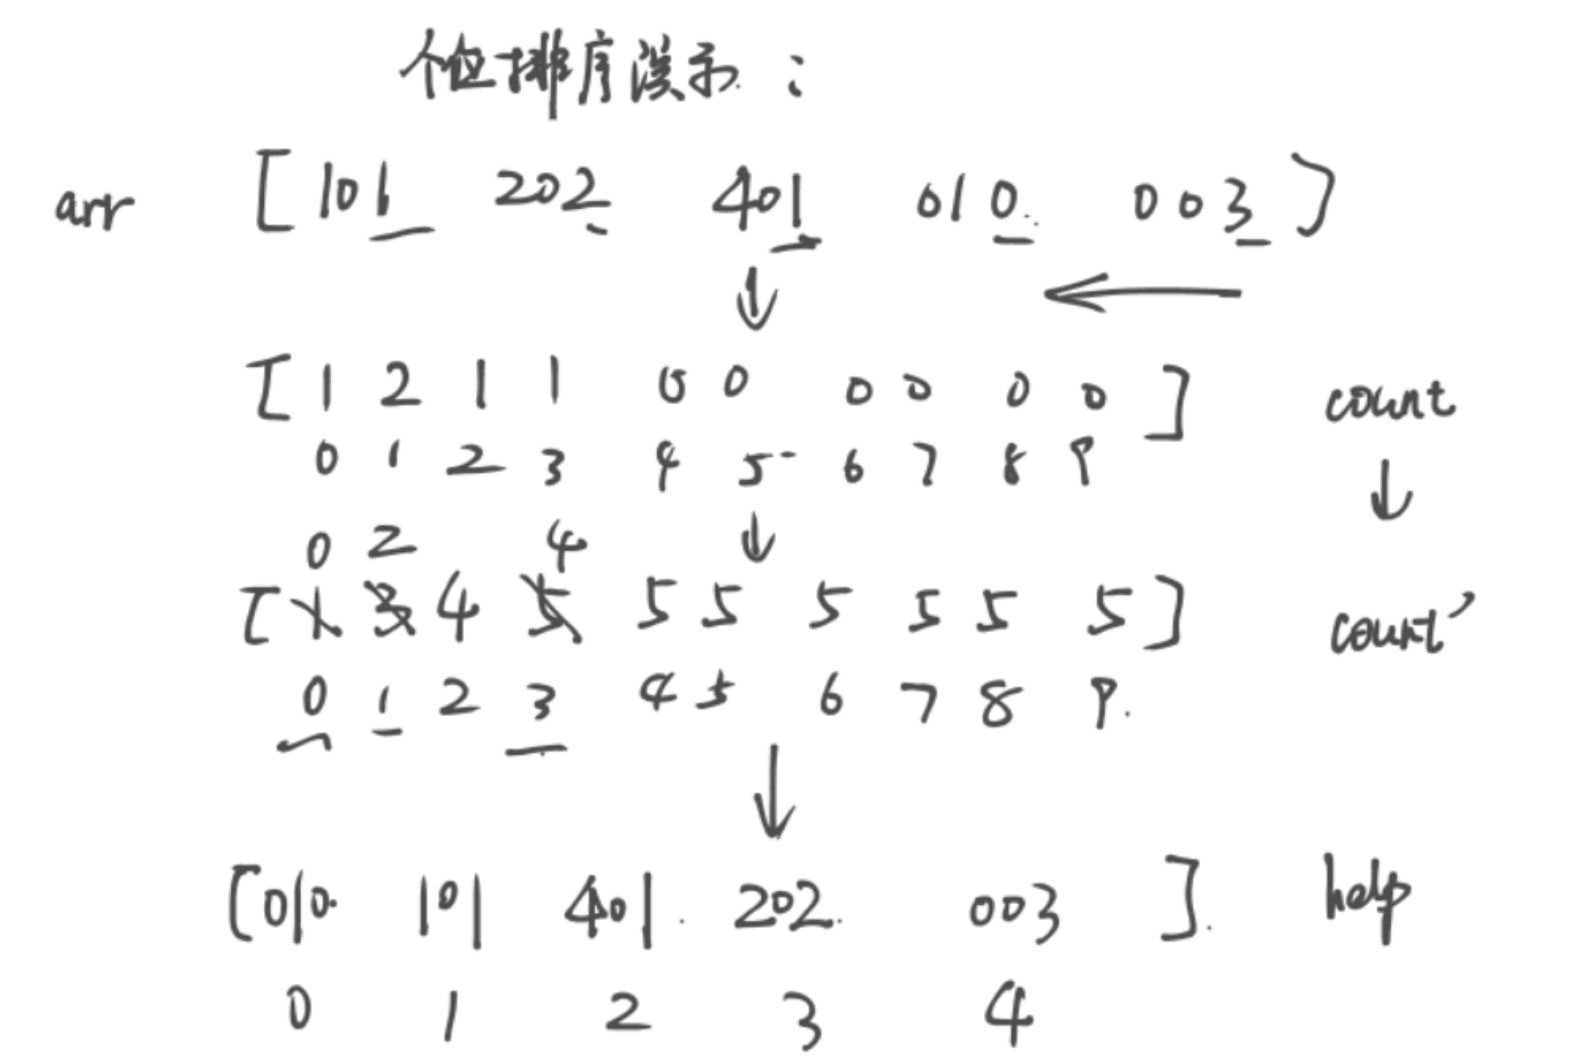 个位排序演示：
arr [101 202 401 010 003]
[1 2 1 1 0 0 0 0 0 0] count
0 1 2 3 4 5 6 7 8 9
0 2 4
[1 3 4 5 5 5 5 5 5 5] count'
0 1 2 3 4 5 6 7 8 9
[010 101 401 202 003] help
0 1 2 3 4